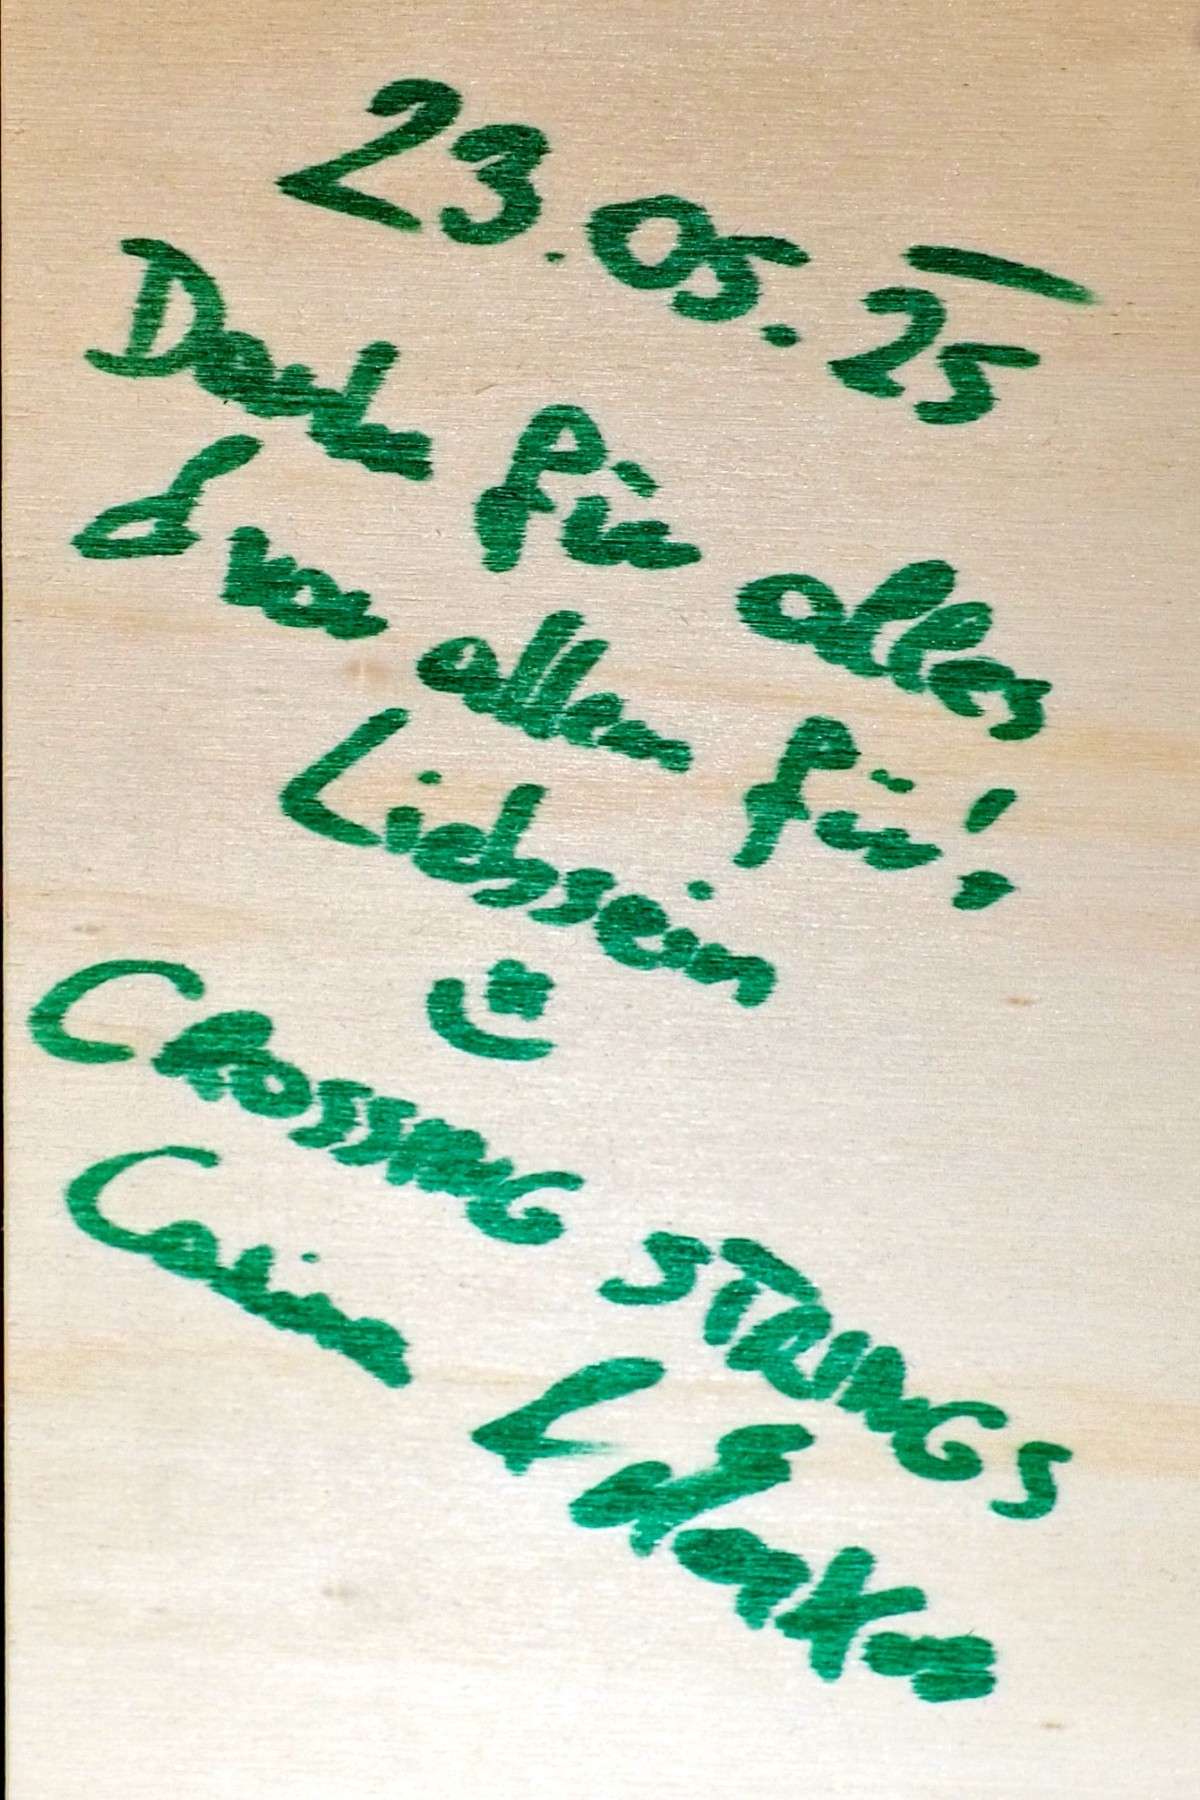 23.05.25
Dank für alles
& vor allem für's
Liebsein
CROSSING STRINGS